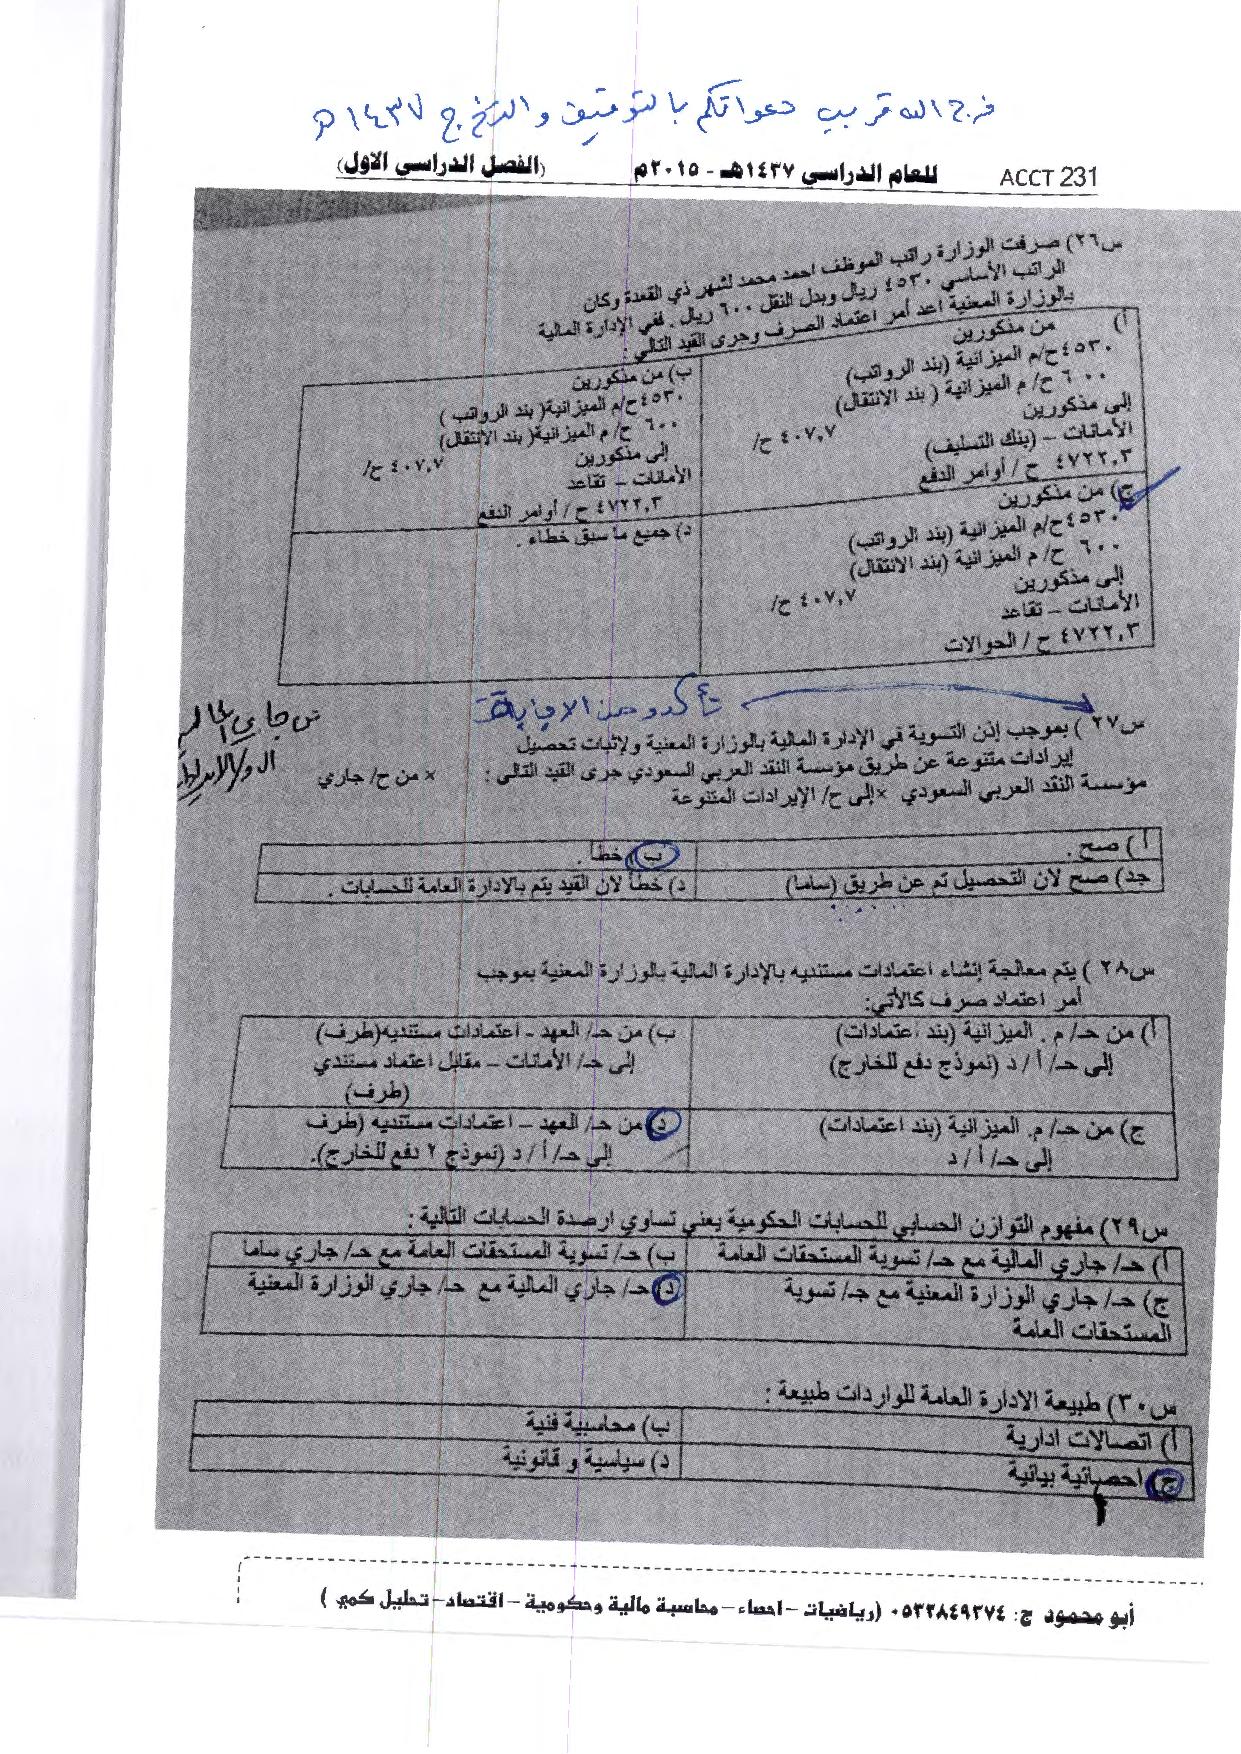 فرج الله قريب دعواتكم بالتوفيق والتخرج ١٤٣٧ هـ
ACCT 231 للعام الدراسي ١٤٣٧هـ - ٢٠١٥م (الفصل الدراسي الاول)
س٢٦) صرفت الوزارة راتب الموظف احمد محمد لشهر ذي القعدة وكان
الراتب الأساسي ٤٥٣٠ ريال وبدل النقل ٦٠٠ ريال . ففي الإدارة المالية
بالوزارة المعنية اعد أمر اعتماد الصرف وجرى القيد التالي :
أ) من مذكورين
٤٥٣٠ح/م الميزانية (بند الرواتب)
٦٠٠ ح/ م الميزانية ( بند الانتقال)
إلى مذكورين
٤٠٧,٧ ح/
الأمانات – (بنك التسليف)
٤٧٢٢,٣ ح / أوامر الدفع
ب) من مذكورين
٤٥٣٠ح/م الميزانية( بند الرواتب )
٦٠٠ ح/ م الميزانية( بند الانتقال)
إلى مذكورين
٤٠٧,٧ ح/
الأمانات – تقاعد
٤٧٢٢,٣ ح / أوامر الدفع
ج) من مذكورين
٤٥٣٠ح/م الميزانية (بند الرواتب)
٦٠٠ ح/ م الميزانية (بند الانتقال)
إلى مذكورين
٤٠٧,٧ ح/
الأمانات – تقاعد
٤٧٢٢,٣ ح / الحوالات
د) جميع ما سبق خطاء .
تأكدو من الاجابة
س٢٧ ) بموجب إذن التسوية في الإدارة المالية بالوزارة المعنية ولإثبات تحصيل
إيرادات متنوعة عن طريق مؤسسة النقد العربي السعودي جرى القيد التالي : × من ح/ جاري
مؤسسة النقد العربي السعودي ×إلى ح/ الإيرادات المتنوعة
من جاري المالية
أ ) صح . ب) خطأ .
جد) صح لان التحصيل تم عن طريق (ساما) د) خطأ لان القيد يتم بالادارة العامة للحسابات .
س٢٨ ) يتم معالجة إنشاء اعتمادات مستنديه بالإدارة المالية بالوزارة المعنية بموجب
أمر اعتماد صرف كالآتي:
أ) من حـ/ م . الميزانية (بند اعتمادات)
إلى حـ/ أ / د (نموذج دفع للخارج)
ب) من حـ/ العهد – اعتمادات مستنديه(طرف)
إلى حـ/ الأمانات – مقابل اعتماد مستندي
(طرف)
ج) من حـ/ م. الميزانية (بند اعتمادات)
إلى حـ/ أ / د
د) من حـ/ العهد – اعتمادات مستنديه (طرف
إلى حـ/ أ / د (نموذج ٢ دفع للخارج).
س٢٩) مفهوم التوازن الحسابي للحسابات الحكومية يعني تساوي ارصدة الحسابات التالية :
أ) حـ/ جاري المالية مع حـ/ تسوية المستحقات العامة ب) حـ/ تسوية المستحقات العامة مع حـ/ جاري ساما
ج) حـ/ جاري الوزارة المعنية مع جـ/ تسوية
المستحقات العامة
د) حـ/ جاري المالية مع حـ/ جاري الوزارة المعنية
س٣٠) طبيعة الادارة العامة للواردات طبيعة :
أ) اتصالات ادارية ب) محاسبية فنية
ج) احصائية بيانية د) سياسية و قانونية
أبو محمود ج: ٠٥٣٣٨٤٩٢٧٤ (رياضيات – احصاء – محاسبة مالية وحكومية – اقتصاد – تحليل كمي )